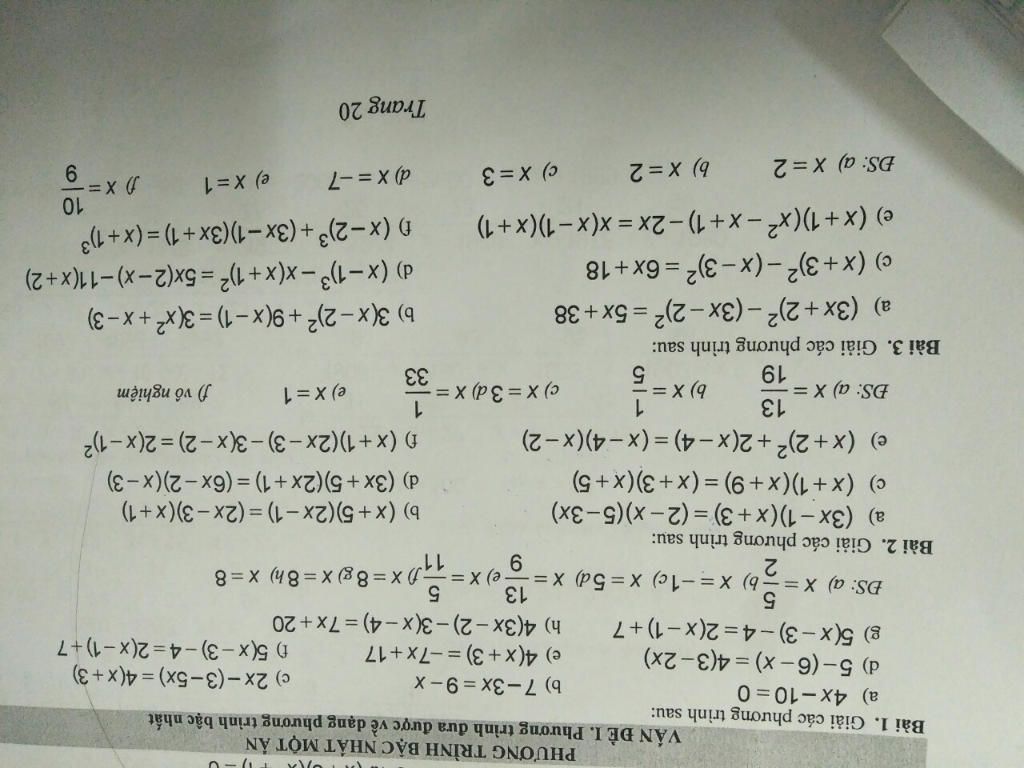 PHƯƠNG TRÌNH BẬC NHẤT MỘT ẨN
VẤN ĐỀ I. Phương trình đưa được về dạng phương trình bậc nhất
Bài 1. Giải các phương trình sau:
a) 4x − 10 = 0 b) 7 − 3x = 9 − x c) 2x − (3 − 5x) = 4(x + 3)
d) 5 − (6 − x) = 4(3 − 2x) e) 4(x + 3) = −7x + 17 f) 5(x − 3) − 4 = 2(x − 1) + 7
g) 5(x − 3) − 4 = 2(x − 1) + 7 h) 4(3x − 2) − 3(x − 4) = 7x + 20
ĐS: a) x = 5/2 b) x = −1 c) x = 5 d) x = 13/9 e) x = 5/11 f) x = 8 g) x = 8 h) x = 8
Bài 2. Giải các phương trình sau:
a) (3x − 1)(x + 3) = (2 − x)(5 − 3x) b) (x + 5)(2x − 1) = (2x − 3)(x + 1)
c) (x + 1)(x + 9) = (x + 3)(x + 5) d) (3x + 5)(2x + 1) = (6x − 2)(x − 3)
e) (x + 2)² + 2(x − 4) = (x − 4)(x − 2) f) (x + 1)(2x − 3) − 3(x − 2) = 2(x − 1)²
ĐS: a) x = 13/19 b) x = 1/5 c) x = 3 d) x = 1/33 e) x = 1 f) vô nghiệm
Bài 3. Giải các phương trình sau:
a) (3x + 2)² − (3x − 2)² = 5x + 38 b) 3(x − 2)² + 9(x − 1) = 3(x² + x − 3)
c) (x + 3)² − (x − 3)² = 6x + 18 d) (x − 1)³ − x(x + 1)² = 5x(2 − x) − 11(x + 2)
e) (x + 1)(x² − x + 1) − 2x = x(x − 1)(x + 1) f) (x − 2)³ + (3x − 1)(3x + 1) = (x + 1)³
ĐS: a) x = 2 b) x = 2 c) x = 3 d) x = −7 e) x = 1 f) x = 10/9
Trang 20